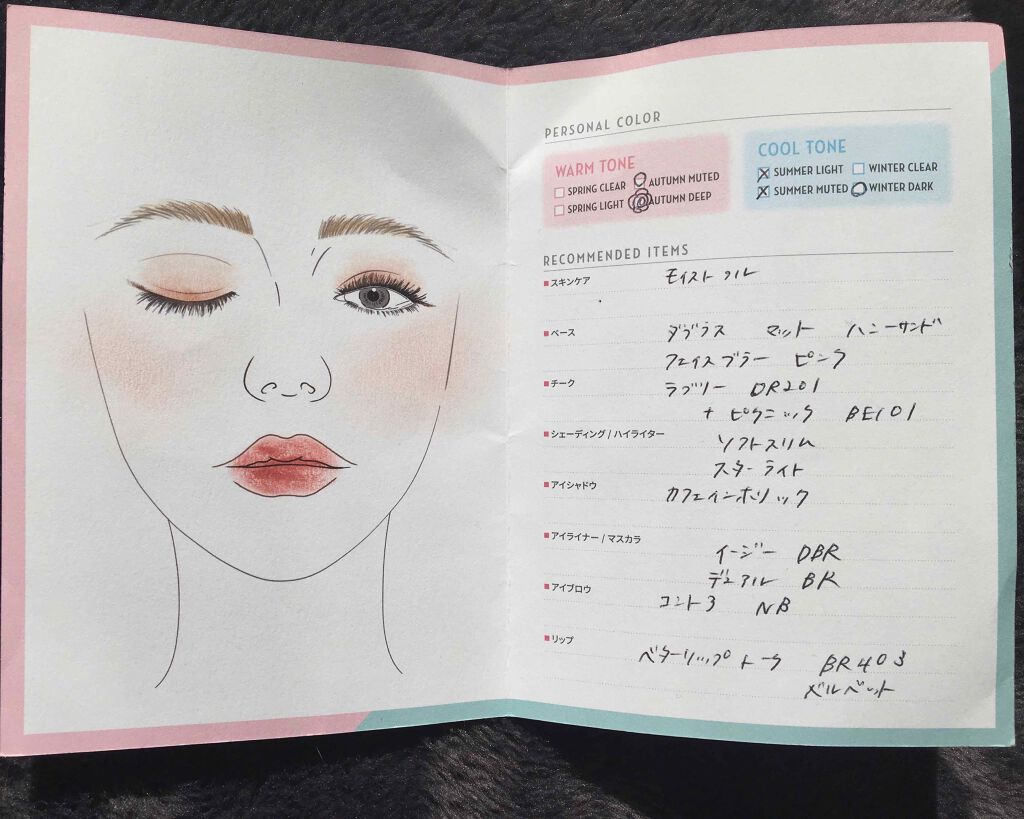 PERSONAL COLOR
WARM TONE
SPRING CLEAR AUTUMN MUTED
SPRING LIGHT AUTUMN DEEP
COOL TONE
SUMMER LIGHT WINTER CLEAR
SUMMER MUTED WINTER DARK
RECOMMENDED ITEMS
スキンケア モイストフル
ベース ダブラス マット ハニーサンド
フェイスブラー ピンク
チーク ラブリー OR201
+ ピクニック BE101
シェーディング / ハイライター ソフトスリム
スターライト
アイシャドウ カフェインホリック
アイライナー / マスカラ
イージー DBR
デュアル BR
アイブロウ コント3 NB
リップ
ベターリップトーク BR403
ベルベット